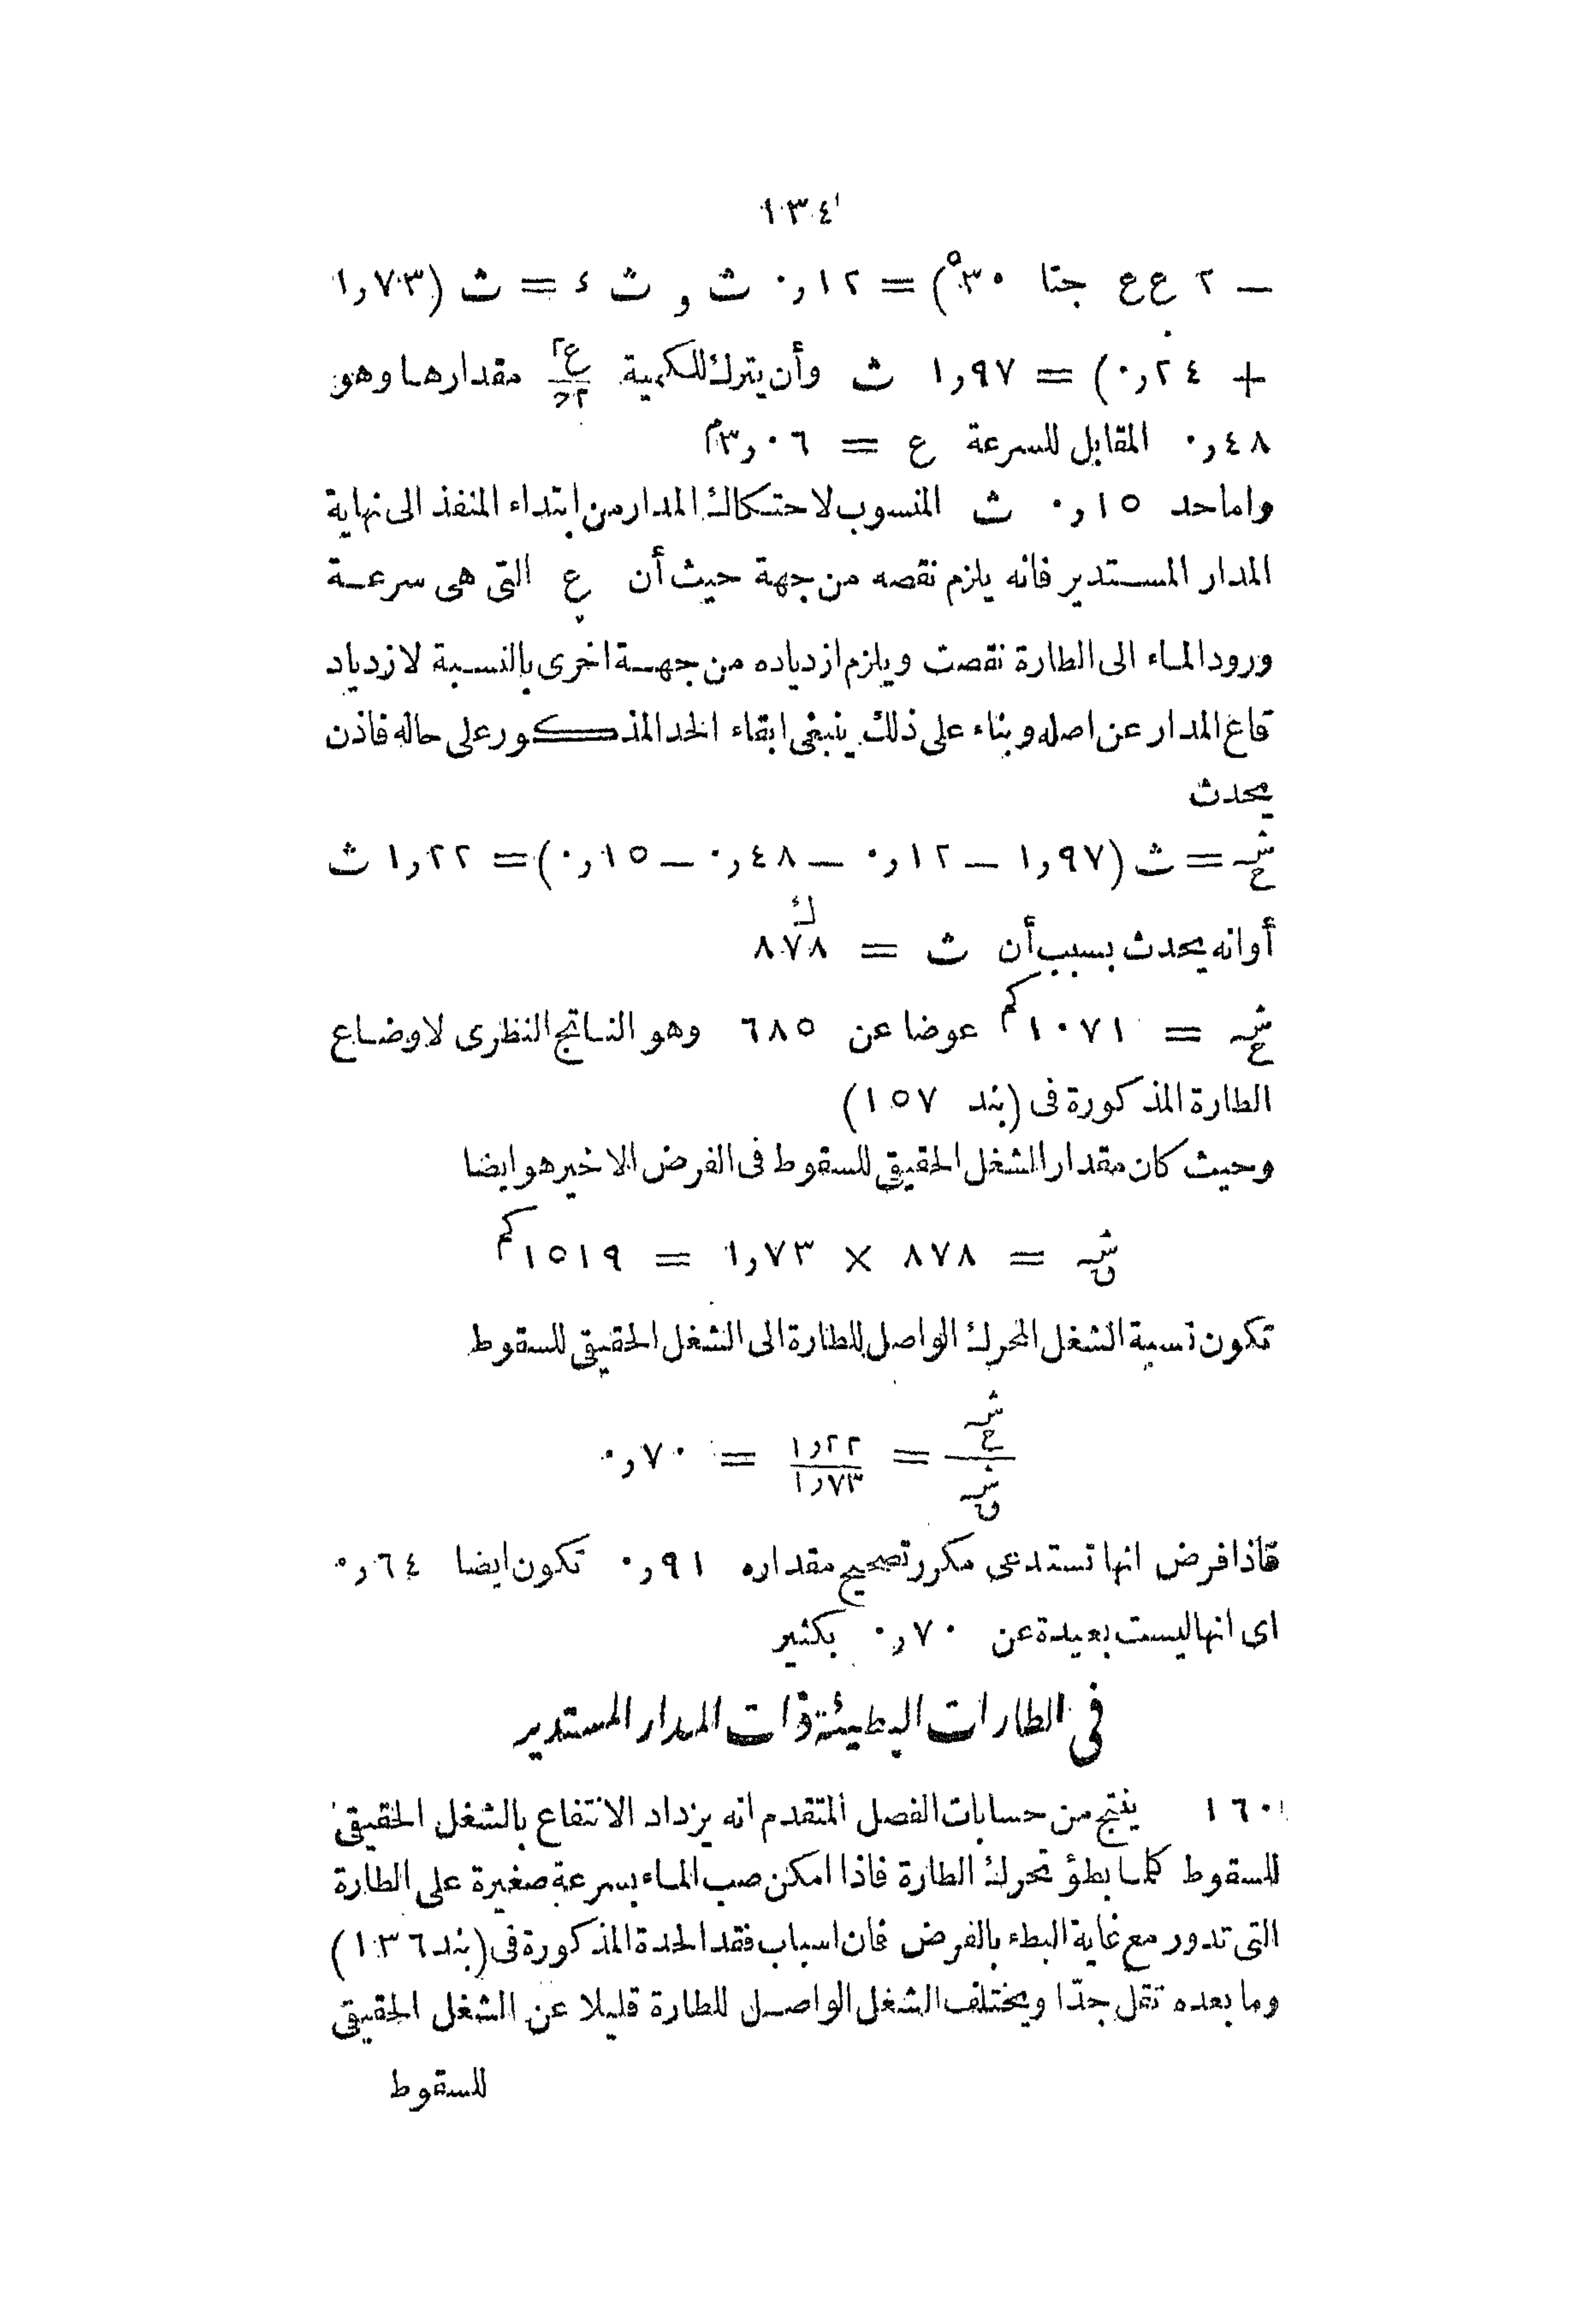 ١٣٤
— ٢ ع ع جتا ٣٠°) = ٠٫١٢ ث و ث ء = ث (١٫٧٣
+ ٠٫٢٤) = ١٫٩٧ ث وأن يترك للكمية ع٢/٢ح مقدارها وهو
٠٫٤٨ المقابل للسرعة ع = ٣٫٠٦م
واما حد ٠٫١٥ ث المنسوب لاحتكاك المدار من ابتداء المنفذ الى نهاية
المدار المستدير فانه يلزم نقصه من جهة حيث أن ع التى هى سرعة
ورود الماء الى الطارة نقصت ويلزم ازدياده من جهة اخرى بالنسبة لازدياد
قاع المدار عن اصله وبناء على ذلك ينبغى ابقاء الحد المذكور على حاله فاذن
يحدث
شـح = ث (١٫٩٧ — ٠٫١٢ — ٠٫٤٨ — ٠٫١٥) = ١٫٢٢ ث
أو انه يحدث بسبب أن ث = ٨٧٨ك
شـح = ١٠٧١كم عوضا عن ٦٨٥ وهو الناتج النظرى لاوضاع
الطارة المذكورة فى (بند ١٥٧)
وحيث كان مقدار الشغل الحقيقى للسقوط فى الفرض الاخير هو ايضا
شـق = ٨٧٨ × ١٫٧٣ = ١٥١٩كم
تكون نسبة الشغل المحرك الواصل للطارة الى الشغل الحقيقى للسقوط
شـح/شـق = ١٫٢٢/١٫٧٣ = ٠٫٧٠
فاذا فرض انها تستدعى مكرر تصحيح مقداره ٠٫٩١ تكون ايضا ٠٫٦٤
اى انها ليست بعيدة عن ٠٫٧٠ بكثير
فى الطارات البطيئة ذات المدار المستدير
١٦٠ ينتج من حسابات الفصل المتقدم انه يزداد الانتفاع بالشغل الحقيقى
للسقوط كلما بطؤ تحرك الطارة فاذا امكن صب الماء بسرعة صغيرة على الطارة
التى تدور مع غاية البطء بالفرض فان اسباب فقد الحدة المذكورة فى (بند ١٣٦)
وما بعده تقل جدّا ويختلف الشغل الواصل للطارة قليلا عن الشغل الحقيقى
للسقوط